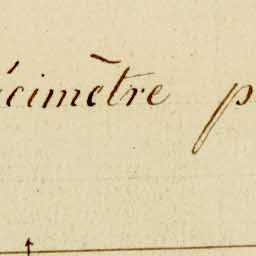 écimètre p